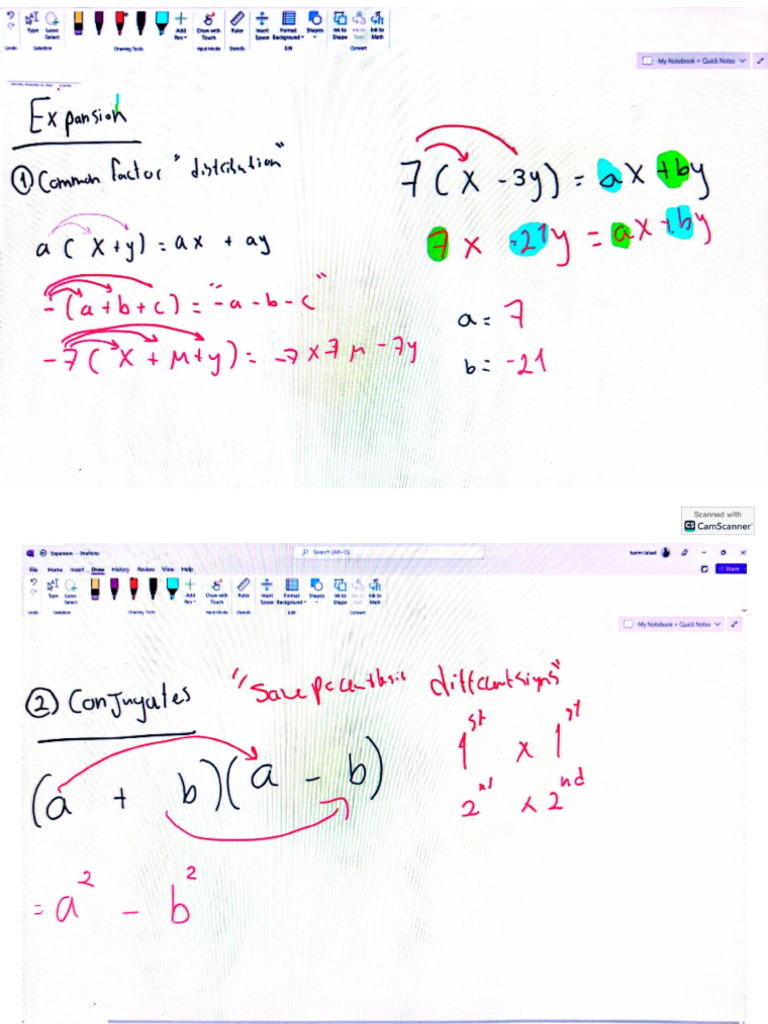 Undo
Type
Lasso Select
Selection
Drawing Tools
Add Pen
Draw with Touch
Input Mode
Ruler
Stencils
Insert Space
Format Background
Edit
Shapes
Ink to Shape
Ink to Text
Ink to Math
Convert
My Notebook > Quick Notes
Expansion
① Common factor "distribution"
a(x+y) = ax + ay
-(a+b+c) = "-a-b-c"
-7(x+μ+y) = -7x7μ-7y
7(x-3y) = ax+by
7x-21y = ax+by
a = 7
b = -21
Scanned with
CS CamScanner
Expansion - OneNote
Search (Alt+Q)
File Home Insert Draw History Review View Help
Share
Undo
Type
Lasso Select
Selection
Drawing Tools
Add Pen
Draw with Touch
Input Mode
Ruler
Stencils
Insert Space
Format Background
Edit
Shapes
Ink to Shape
Ink to Text
Ink to Math
Convert
My Notebook > Quick Notes
② Conjugates "Same parenthesis different signs"
(a + b)(a - b)
1st x 1st
2nd x 2nd
= a² - b²